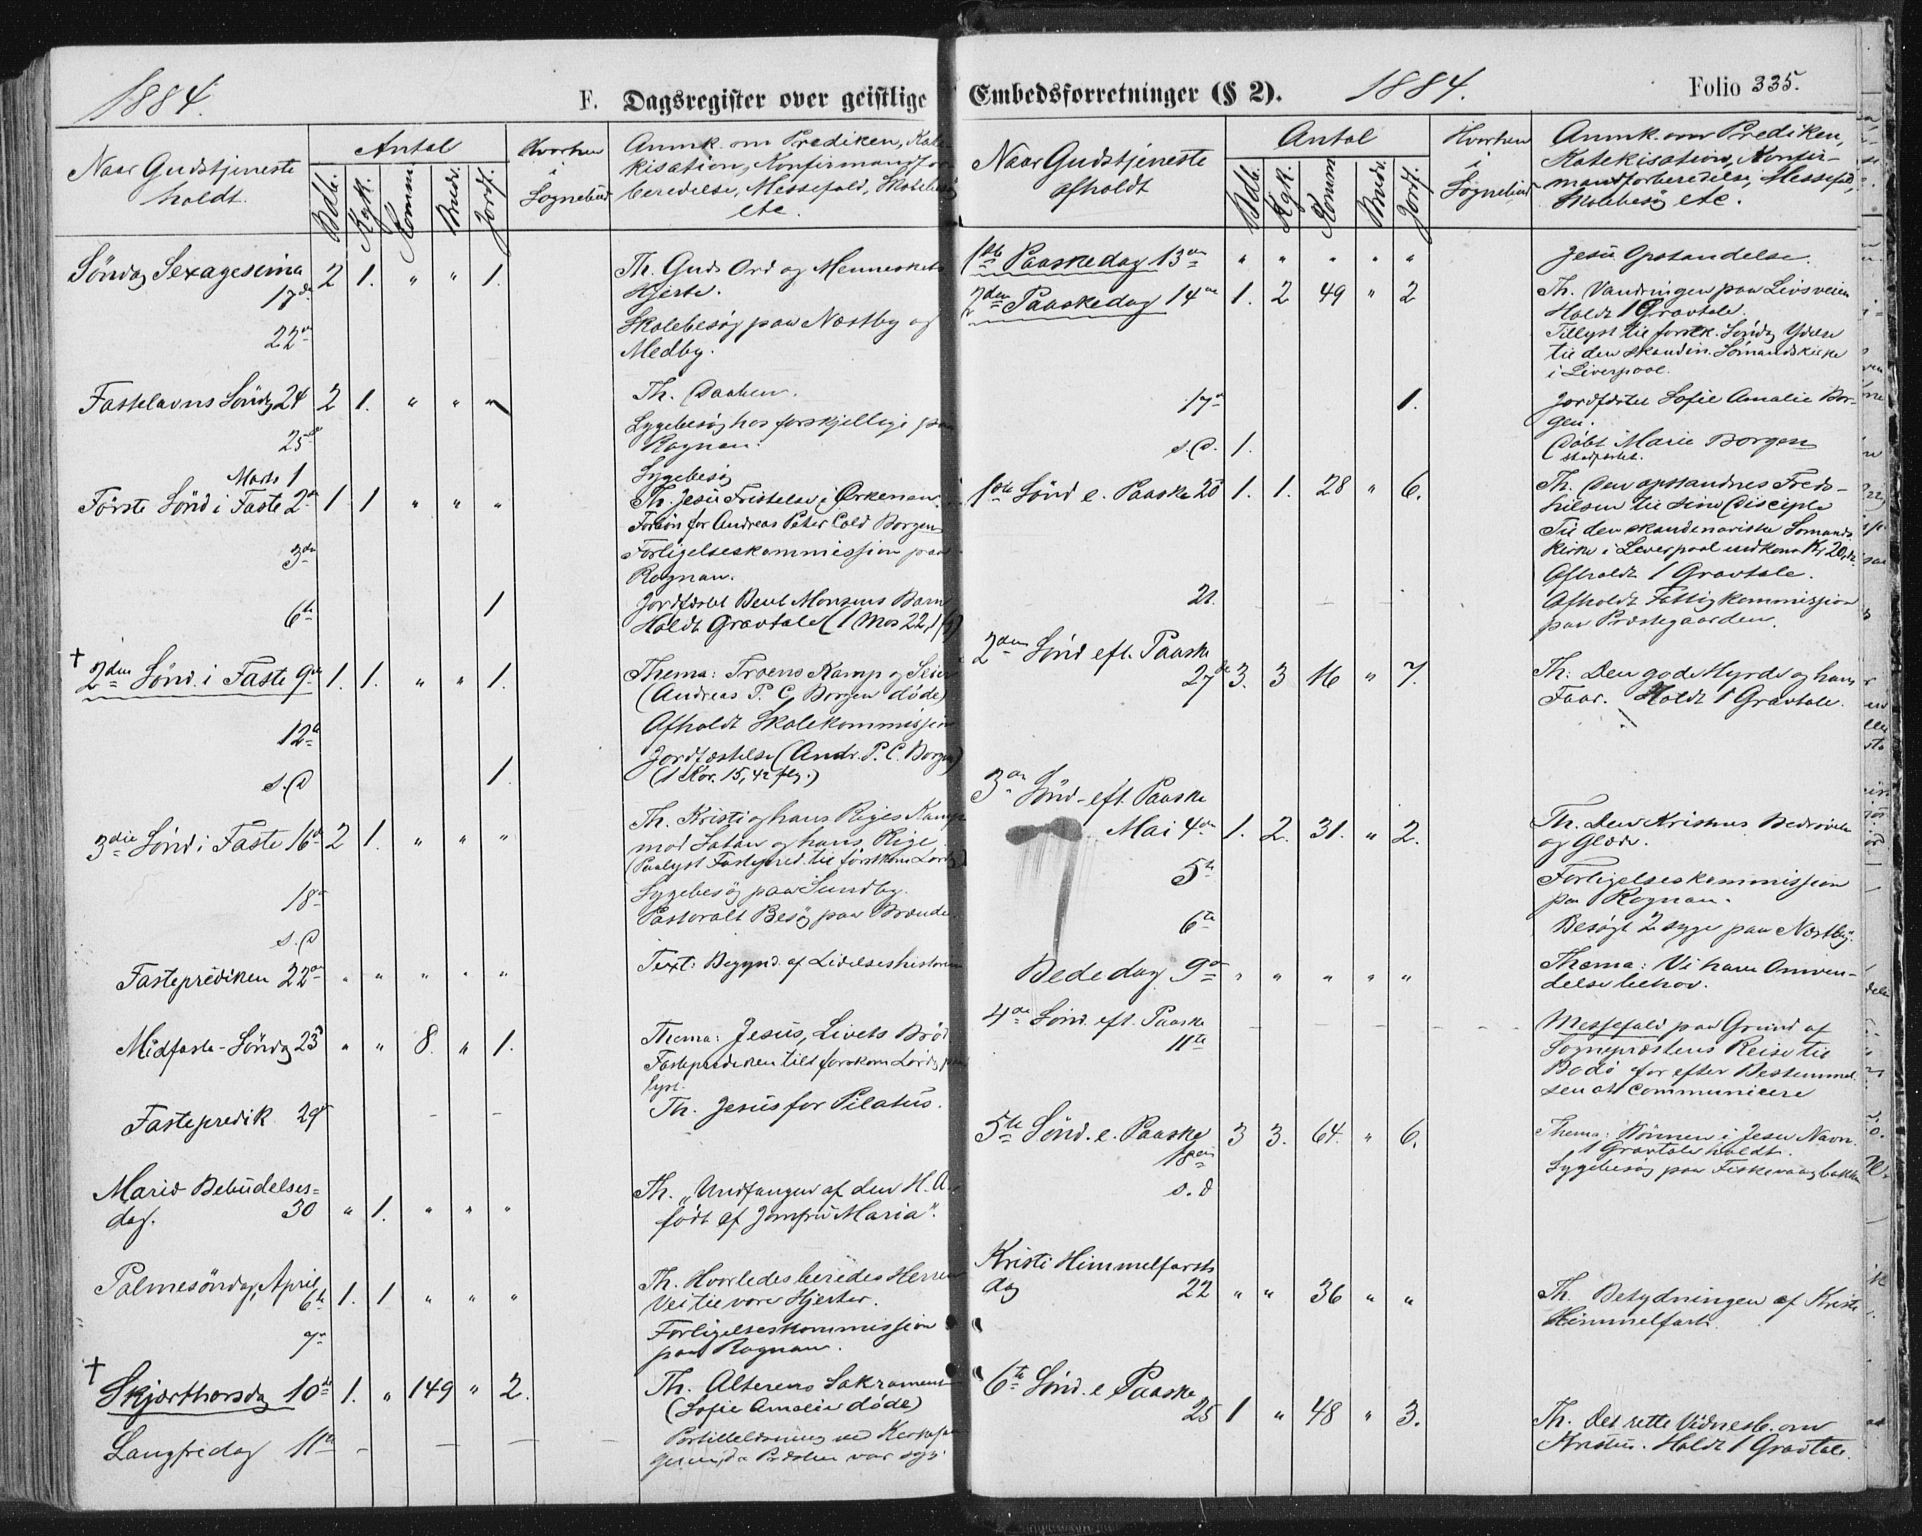 1884.
F. Dagsregister over geistlige
Naar Gudstjeneste
holdt.
Antal
Bdb.
Kgk.
Komm
Brud.
Jordf.
Hvorhen
i
Sognebud
Anmk. om Prediken, Kate
kisation, Konfirmantfor
beredelse, Messefald, Skolebesøg
etc.
Søndag Sexagesima 2 1. " " 1. Th. Guds Ord og Menneskets
17de Hjerte.
22an Skolebesøg paa Næstby og
Medby.
Fastelavns Sønd. 24 2 1. " " Th. Daaben.
25de Sygebesøg hos forskjellige paa
Rognan.
Marts 1 Sygebesøg
Første Sønd i Faste 2an 1 1 " " " Th. Jesu Fristelse i Ørkenen.
Forbøn for Andreas Peter Cold Borgen
3die Forligelseskommission paa
Rognan.
6te 1 Jordfæstet Bent Monsens Barn
Holdt Gravtale (1 Mos 22,1
† 2den Sønd. i Faste 9de 1. 1. " " 1. Thema: Troens Kamp og Seier
(Andreas P. C. Borgen døde)
12te Afholdt Skolekommission
s.D 1. Jordfæstelse (Andr. P. C. Borgen)
(1 Kor. 15, 42 flg.)
3die Sønd i Faste 16de 2 1. " " " Th. Kristi og hans Riges Kamp
mod Satan og hans Rige.
(Paalyst Fastepred. til førstkom Lørdag)
18de Sygebesøg paa Sundby.
s.D Pastoralt Besøg paa Brænde
Fasteprediken 22an " " " " " Text: Begynd. af Lidelseshistorien
Midfaste-Søndag 23 " " 8. " 1. Thema: Jesus, Livets Brød
Fasteprediken til førskom Lørdg paa
lyst.
Fastepredik 29de - - Th. Jesus for Pilatus.
Mariæ Bebudelses=
dag. 30 " 1. " " " Th. "Undfangen af den H. A.
født af Jomfru Maria".
Palmesøndag, April
6te 1. 1 " " " Th. Hvorledes beredes Herren
Vei til vore Hjerter.
7de Forligelseskommission
paa Rognan.
† Skjærthorsdag 10de 1. " 149 " 2. Th. Alterens Sakrament
(Sofie Amalie døde)
Langfredag 11te - - - - Postillelæsning ved Kirkesan
geren, da Præsten var syg.
Embedsforretninger (§ 2). 1884. Folio 335.
Naar Gudstjeneste
afholdt
Antal
Bdb.
Kgk.
Komm
Brud.
Jordf.
Hvorhen
i
Sognebud
Anmk. om Prediken,
Katekisation, Konfir-
mantforberedelse, Messefald,
Skolebesøg etc.
1ste Paaskedag 13de " " " " " Jesu Opstandelse.
2den Paaskedag 14de 1. 2 49 " 2 Th. Vandringen paa Livsveien
Holdt 1 Gravtale.
Tillyst til førstk. Søndg Ydelse
til den skandin. Sømandskirke
i Liverpool.
17de 1. Jordfæstet Sofie Amalie Bor-
gen.
s.D. 1. Døbt Marie Borgen
1ste Sønd e. Paaske 20 1. 1. 28 " 6. Th. Den opstandnes Freds-
hilsen til sine Disciple
Til den skandinaviske Sømands
kirke i Leverpool indkom Kr 20,
Afholdt 1 Gravtale.
21. Afholdt Fattigkommission
paa Præstegaarden.
2den Sønd eft. Paaske
27de 3. 3 16 " 7. Th. Den gode Hyrde og hans
Faar. Holdt 1 Gravtale.
3die Sønd. eft. Paaske
Mai 4de 1. 2. 31. " 2. Th. Den Kristnes Bedrøvelse
og Glæde.
5te Forligelseskommission
paa Rognan.
6te Besøgt 2 syge paa Næstby.
Bededag 9de " " " " " Thema: Vi have Omven-
delse behov.
4de Sønd. eft. Paaske
11te - - - - - Messefald paa Grund af
Sognepræstens Reise til
Bodø for efter Bestemmel
sen at communicere
5te Sønd. e. Paaske 3 3. 64. " 6. Thema: Bønnen i Jesu Navn.
18de 1 Gravtale holdt.
s.d Sygebesøg paa Fiskevaagbakken
Kristi Himmelfarts
dag 22 " " 36 " " Th. Betydningen af Kristi
Himmelfart.
6te Sønd. e Paaske
25 1 " 48 " 3. Th. Det rette Vidnesb. om
Kristus. Holdt 1 Gravtale.